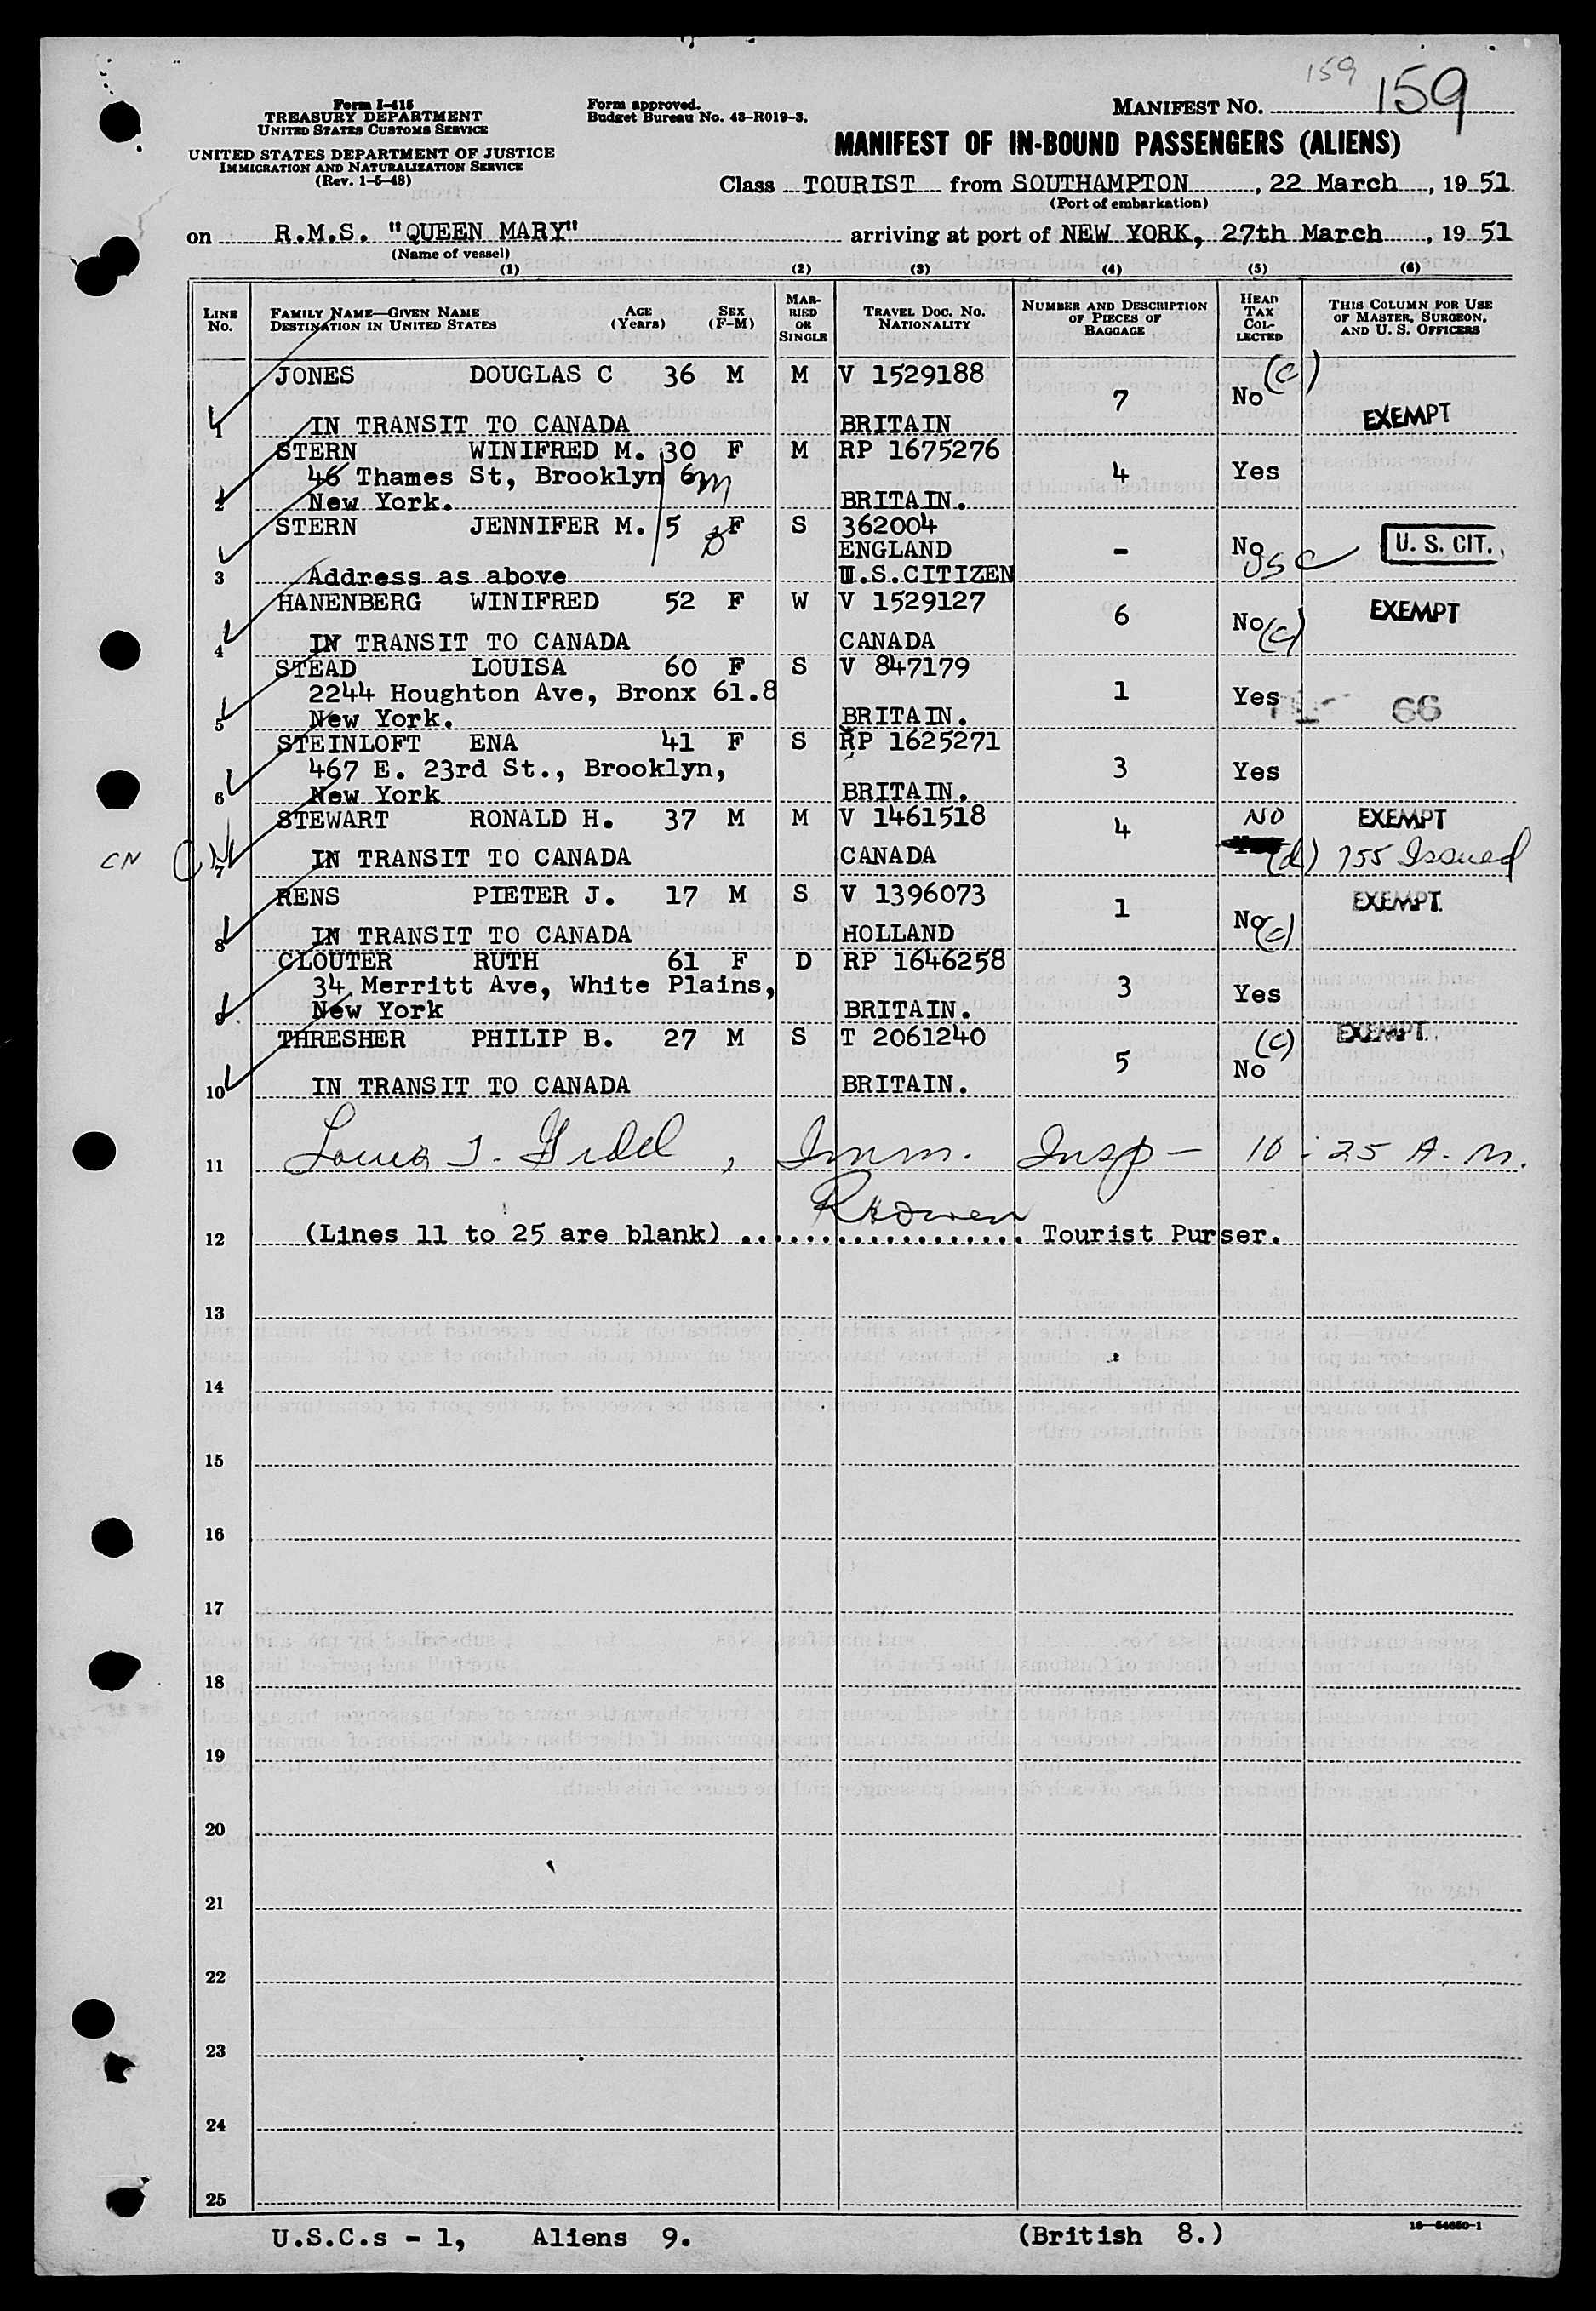 159
Form I-415
TREASURY DEPARTMENT
UNITED STATES CUSTOMS SERVICE
UNITED STATES DEPARTMENT OF JUSTICE
IMMIGRATION AND NATURALIZATION SERVICE
(Rev. 1-5-48)
Form approved.
Budget Bureau No. 43-R019-3.
MANIFEST NO. 159
MANIFEST OF IN-BOUND PASSENGERS (ALIENS)
Class TOURIST from SOUTHAMPTON, 22 March, 19 51
(Port of embarkation)
on R.M.S. "QUEEN MARY" arriving at port of NEW YORK, 27th March, 19 51
(Name of vessel)
(1) (2) (3) (4) (5) (6)
LINE No. FAMILY NAME—GIVEN NAME DESTINATION IN UNITED STATES AGE (Years) SEX (F-M) MARRIED OR SINGLE TRAVEL DOC. NO. NATIONALITY NUMBER AND DESCRIPTION OF PIECES OF BAGGAGE HEAD TAX COLLECTED THIS COLUMN FOR USE OF MASTER, SURGEON, AND U. S. OFFICERS
JONES DOUGLAS C 36 M M V 1529188 7 No (c) EXEMPT
1 IN TRANSIT TO CANADA BRITAIN
STERN WINIFRED M. 30 F M RP 1675276
46 Thames St, Brooklyn 6 m 4 Yes
2 New York. BRITAIN.
STERN JENNIFER M. 5 F S 362004
ENGLAND - No USC U. S. CIT.
3 Address as above U.S.CITIZEN
HANENBERG WINIFRED 52 F W V 1529127 6 No (c) EXEMPT
4 IN TRANSIT TO CANADA CANADA
STEAD LOUISA 60 F S V 847179
2244 Houghton Ave, Bronx 61.8 1 Yes 66
5 New York. BRITAIN.
STEINLOFT ENA 41 F S RP 1625271
467 E. 23rd St., Brooklyn, 3 Yes
6 New York BRITAIN.
STEWART RONALD H. 37 M M V 1461518 4 NO EXEMPT
CN 7 IN TRANSIT TO CANADA CANADA (d) 755 Issued
RENS PIETER J. 17 M S V 1396073 1 No (c) EXEMPT.
8 IN TRANSIT TO CANADA HOLLAND
CLOUTER RUTH 61 F D RP 1646258
34 Merritt Ave, White Plains, 3 Yes
9 New York BRITAIN.
THRESHER PHILIP B. 27 M S T 2061240 5 No (c) EXEMPT.
10 IN TRANSIT TO CANADA BRITAIN.
11 Imm. Insp - 10:25 A.M.
12 (Lines 11 to 25 are blank) .................. Tourist Purser.
13
14
15
16
17
18
19
20
21
22
23
24
25
U.S.C.s - 1, Aliens 9. (British 8.)
16—54650-1